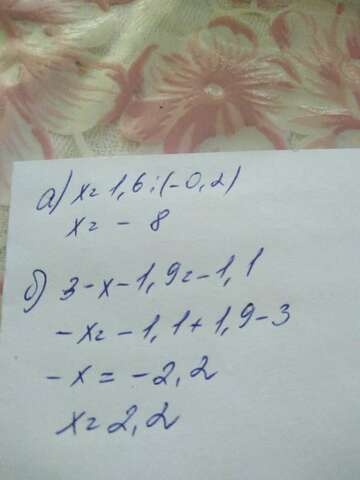 а) x = 1,6 : (-0,2)
x = - 8
б) 3 - x - 1,9 = -1,1
-x = -1,1 + 1,9 - 3
-x = -2,2
x = 2,2